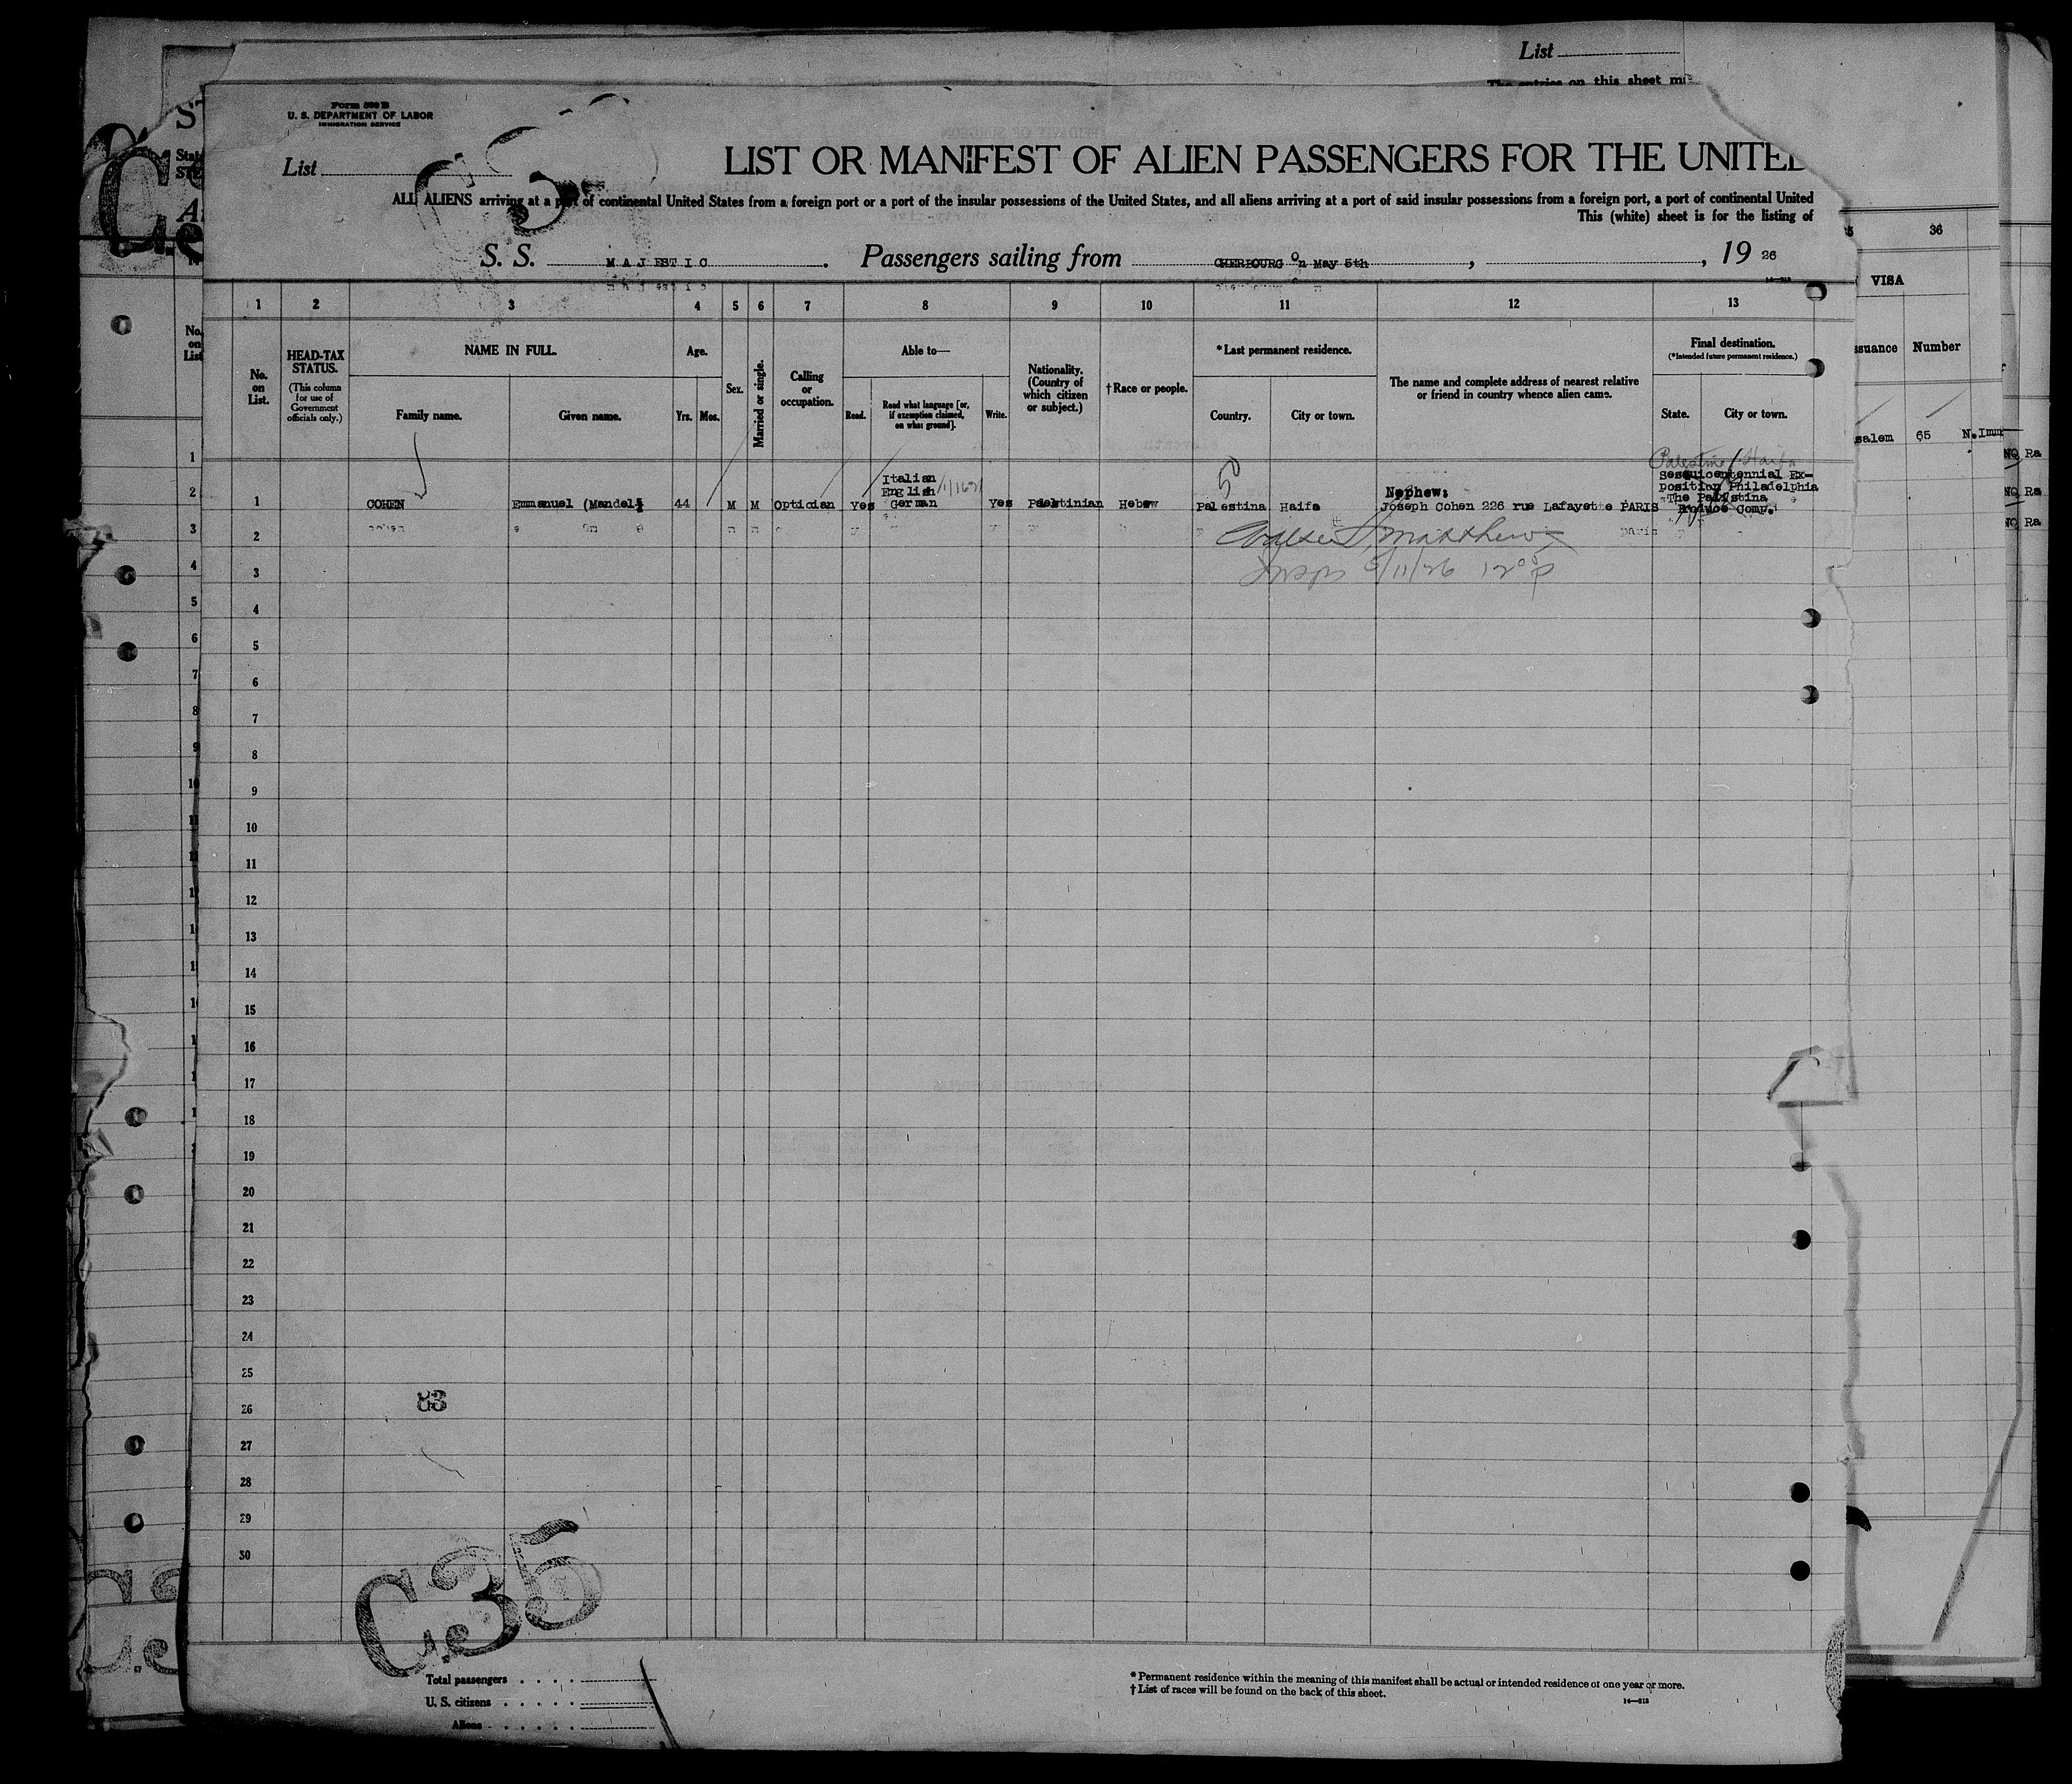 List
The entries on this sheet
Form 500 B
U. S. DEPARTMENT OF LABOR
IMMIGRATION SERVICE
List
LIST OR MANIFEST OF ALIEN PASSENGERS FOR THE UNITED
ALL ALIENS arriving at a port of continental United States from a foreign port or a port of the insular possessions of the United States, and all aliens arriving at a port of said insular possessions from a foreign port, a port of continental United
This (white) sheet is for the listing of
S. S. MAJESTIC. Passengers sailing from CHERBOURG On May 5th, , 19 26
1 2 3 4 5 6 7 8 9 10 11 12 13
36
VISA
No. on List.
HEAD-TAX STATUS.
(This column for use of Government officials only.)
NAME IN FULL.
Family name.
Given name.
Age.
Yrs. Mos.
Sex.
Married or single.
Calling or occupation.
Able to—
Read.
Read what language [or, if exemption claimed, on what ground].
Write.
Nationality. (Country of which citizen or subject.)
† Race or people.
* Last permanent residence.
Country.
City or town.
The name and complete address of nearest relative or friend in country whence alien came.
Final destination.
(*Intended future permanent residence.)
State.
City or town.
ssuance Number
salem 65 N.Imm
Palestine / Haifa
1 COHEN Emmanuel (Mandel) 44 M M Optician Yes Italian English German Yes Palestinian Hebew Palestina Haifa Nephew: Joseph Cohen 226 rue Lafayette PARIS Sesquicentennial Exposition Philadelphia The Palestina Produce Comp.
50
Walter D. Matthews
Insp 5/11/26 12 00 P
2
3
4
5
6
7
8
9
10
11
12
13
14
15
16
17
18
19
20
21
22
23
24
25
26
27
28
29
30
83
C.35
Total passengers
U. S. citizens
Aliens
* Permanent residence within the meaning of this manifest shall be actual or intended residence of one year or more.
† List of races will be found on the back of this sheet.
14—218